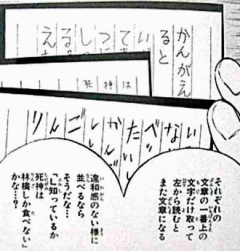 かんがえ
ると
えるしつてい
死神は
りんごしかたべない
それぞれの
文章の一番上の
文字だけ取って
左から読むと
また文章になる
違和感のない様に
並べるなら
そうだな…
「L知っているか
死神は
林檎しか食べない」
かな…?